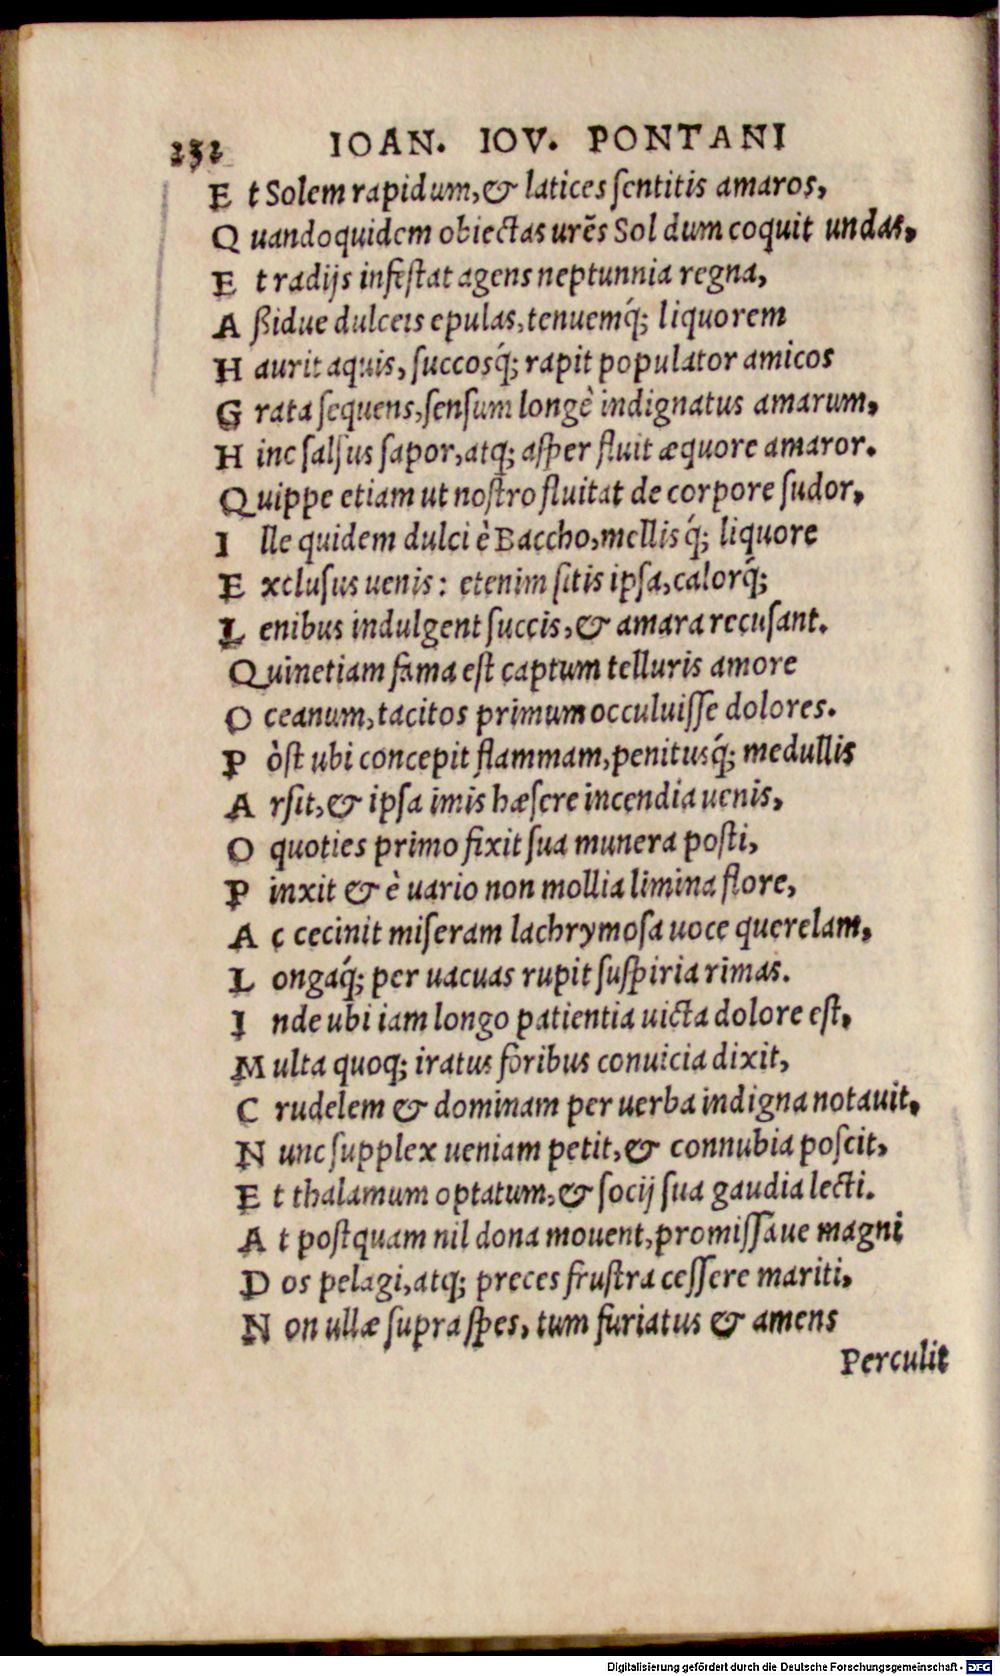 232 IOAN. IOV. PONTANI
Et Solem rapidum, & latices sentitis amaros,
Quandoquidem obiectas urẽs Sol dum coquit undas,
Et radijs infestat agens neptunnia regna,
Aßidue dulceis epulas, tenuemq́; liquorem
Haurit aquis, succosq́; rapit populator amicos
Grata sequens, sensum longè indignatus amarum,
Hinc salsus sapor, atq; asper fluit æquore amaror.
Quippe etiam ut nostro fluitat de corpore sudor,
Ille quidem dulci è Baccho, mellisq́; liquore
Exclusus uenis: etenim sitis ipsa, calorq́;
Lenibus indulgent succis, & amara recusant.
Quinetiam fama est captum telluris amore
Oceanum, tacitos primum occuluisse dolores.
Pòst ubi concepit flammam, penitusq́; medullis
Arsit, & ipsa imis hæsere incendia uenis,
O quoties primo fixit sua munera posti,
Pinxit & è uario non mollia limina flore,
Ac cecinit miseram lachrymosa uoce querelam,
Longaq́; per uacuas rupit suspiria rimas.
Inde ubi iam longo patientia uicta dolore est,
Multa quoq; iratus foribus conuicia dixit,
Crudelem & dominam per uerba indigna notauit,
Nunc supplex ueniam petit, & connubia poscit,
Et thalamum optatum, & socij sua gaudia lecti.
At postquam nil dona mouent, promissaue magni
Dos pelagi, atq; preces frustra cessere mariti,
Non ullæ supra spes, tum furiatus & amens
Perculit
Digitalisierung gefördert durch die Deutsche Forschungsgemeinschaft - DFG